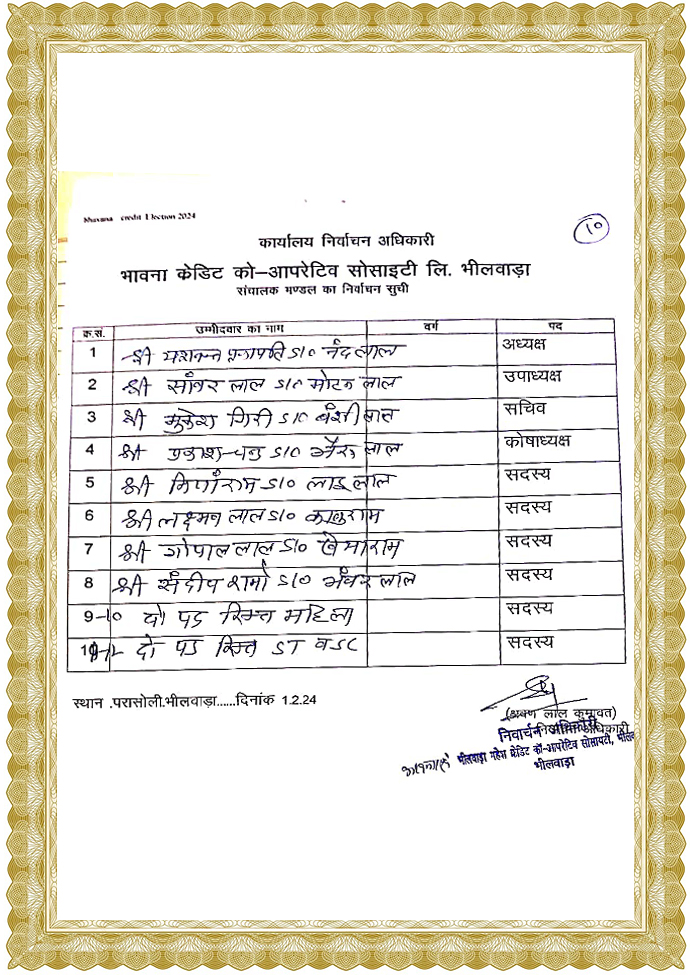 Bhavana credit Election 2024
10
कार्यालय निर्वाचन अधिकारी
भावना क्रेडिट को–आपरेटिव सोसाइटी लि. भीलवाड़ा
संचालक मण्डल का निर्वाचन सुची
क.स. उम्मीदवार का नाम वर्ग पद
1 श्री यशवन्त प्रजापति S/O नंदलाल अध्यक्ष
2 श्री सांवर लाल S/O लाल उपाध्यक्ष
3 श्री मुकेश गिरी S/O बंशीलाल सचिव
4 श्री प्रकाश चन्द्र S/O भैरू लाल कोषाध्यक्ष
5 श्री S/O लादूलाल सदस्य
6 श्री लक्ष्मण लाल S/O कालुराम सदस्य
7 श्री गोपाल लाल S/O खेमाराम सदस्य
8 श्री संदीप शर्मा S/O भंवर लाल सदस्य
9-10 दो पद रिक्त महिला सदस्य
11-12 दो पद रिक्त ST व SC सदस्य
स्थान .परासोली.भीलवाड़ा......दिनांक 1.2.24
(श्रवण लाल कुमावत)
निर्वाचन अधिकारी
भीलवाड़ा महेश क्रेडिट को-आपरेटिव सोसायटी,
भीलवाड़ा